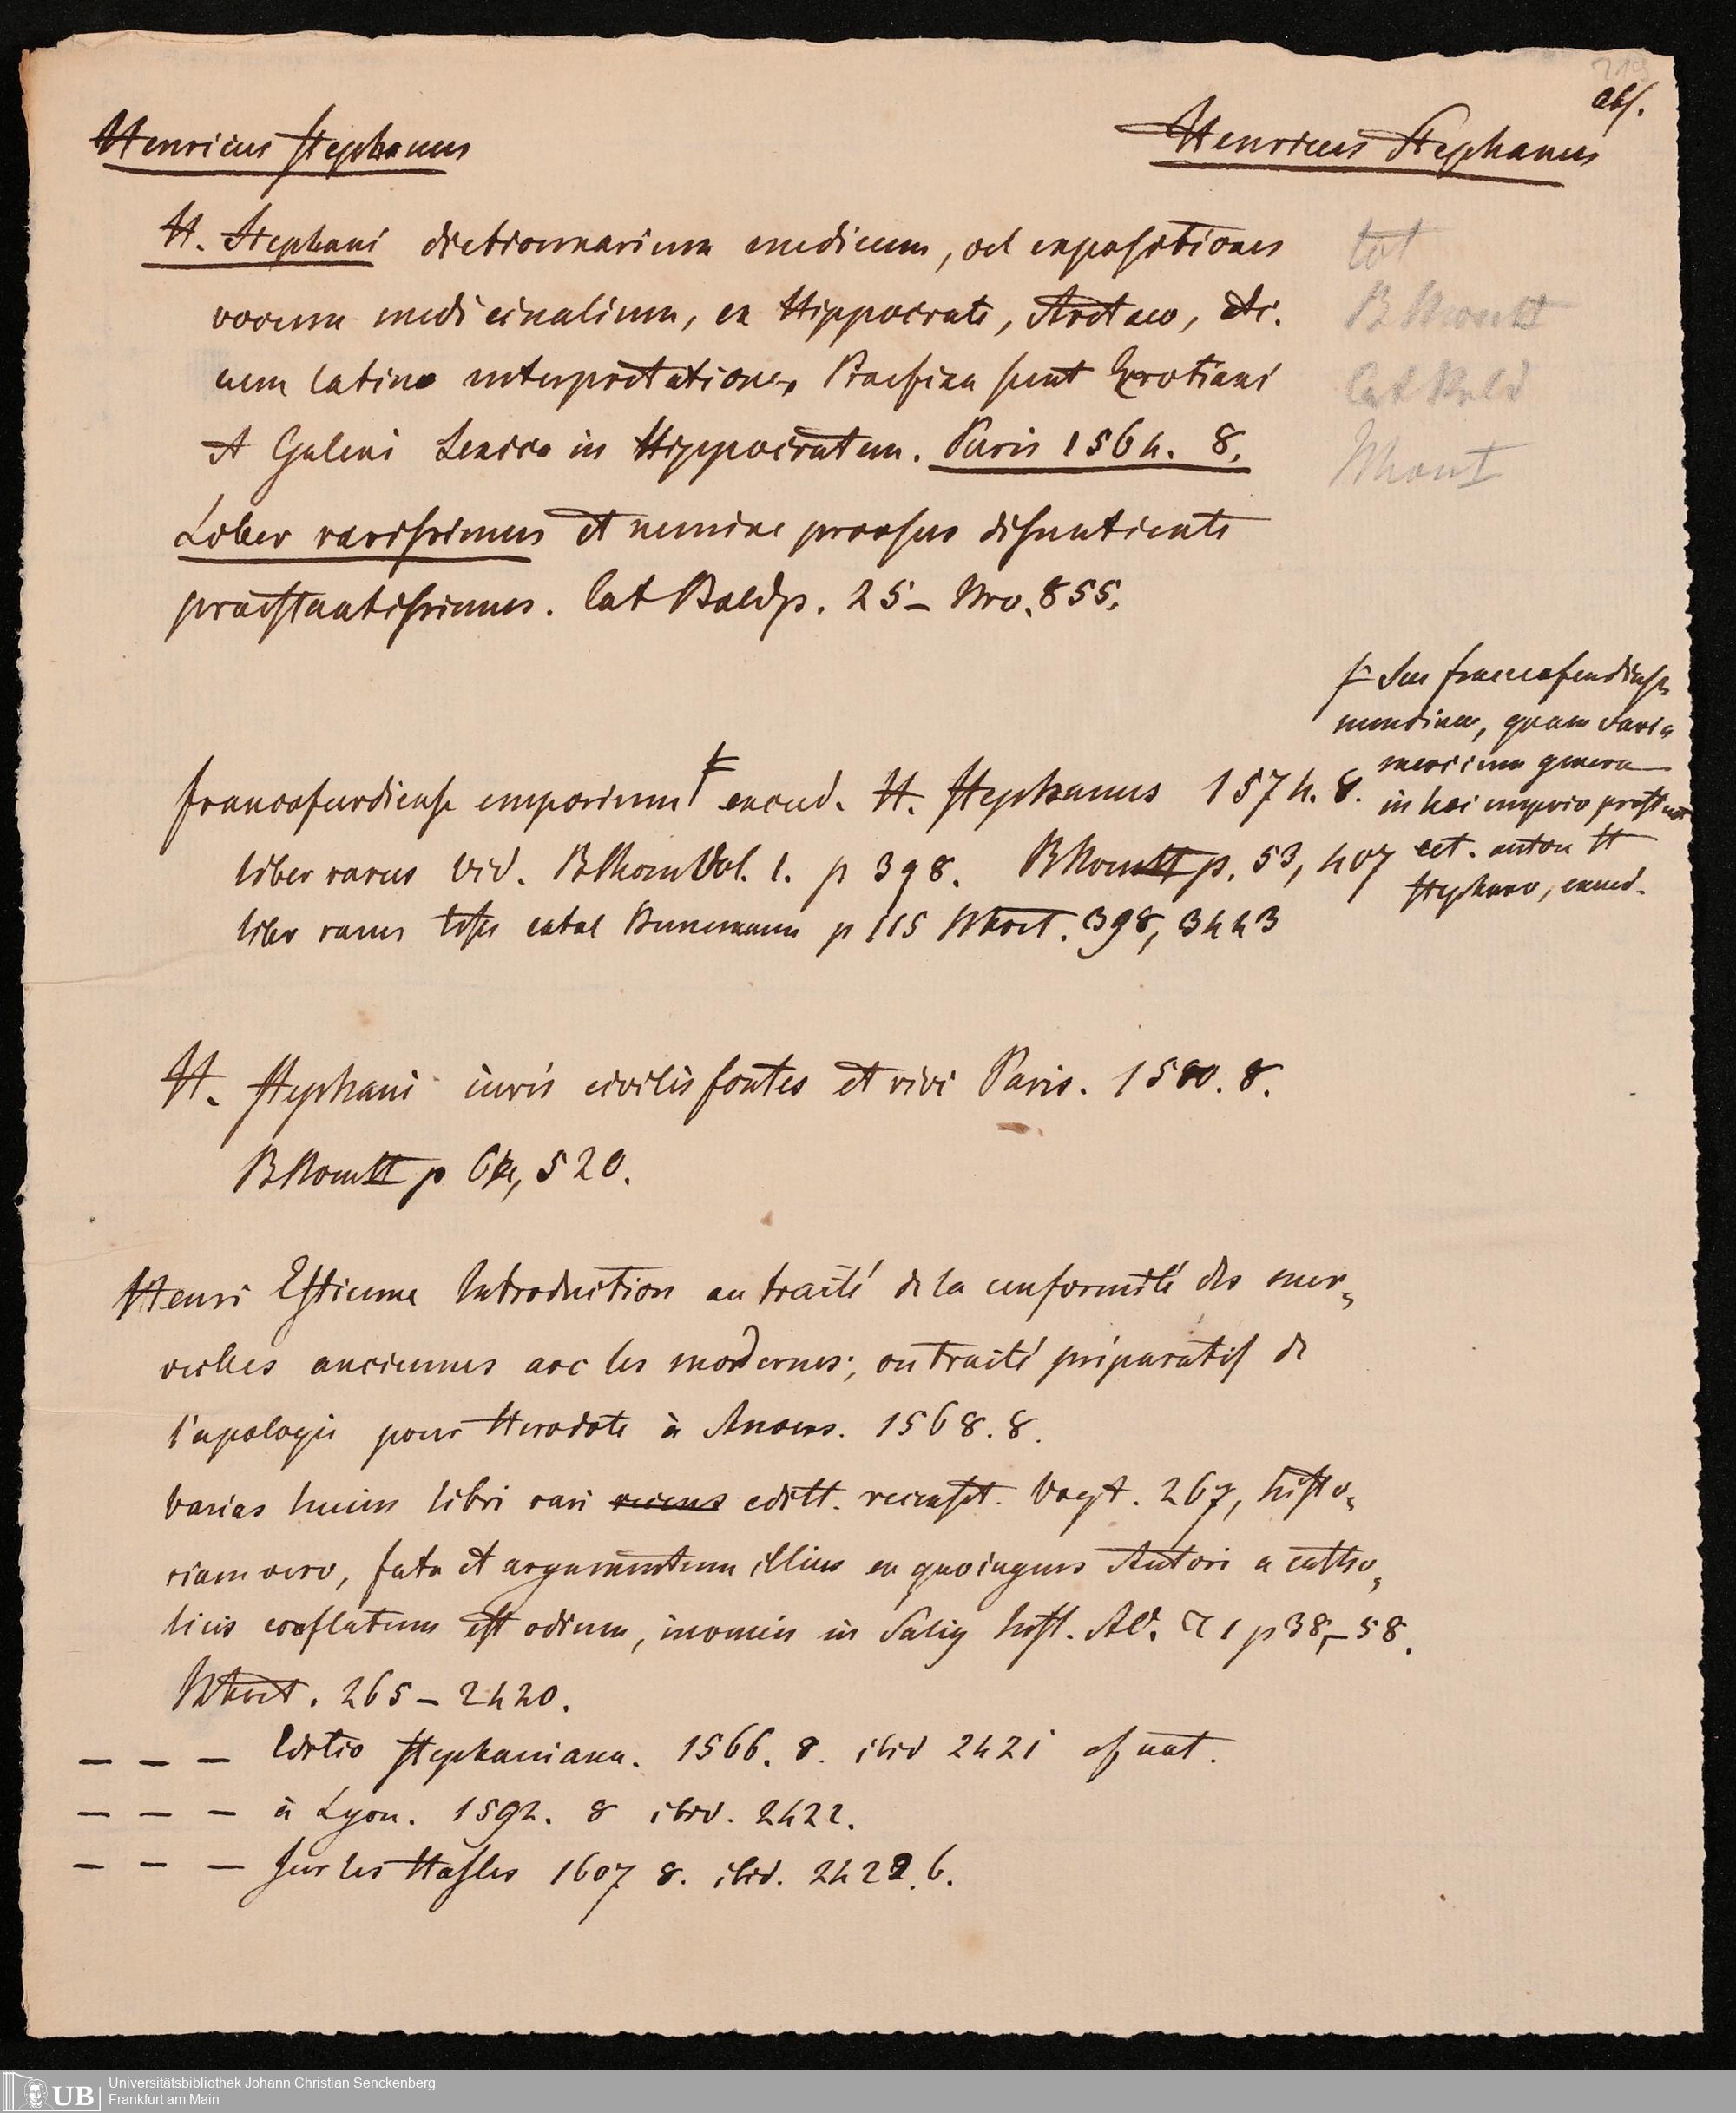 abs.
Henricus Stephanus
Henricus Stephanus
H. Stephani dictionnarium medicum, vel expositiones
vocum medicinalium, ex Hippocrate, Aretaeo, etc.
cum latina interpretatione. Praefixa sunt Erotiani
et Galeni Lexica in Hippocratem. Paris 1564. 8.
Liber rarissimus et nemine prorsus dissentiente
praestantissimus. Cat Baldp. 25 – Nro. 855.
tot
Cat Bald
seu francofurdienses
nundinae, quam varia
mercium genera
in hoc emporio prostent
cet. autore H
Stephano, excud.
francofurdiense emporium excud. H. Stephanus 1574. 8.
liber rarus vid. BThom Vol. 1. p 398. p. 53, 407
liber rarus teste catal Bunemann p 115 398, 3443
H. Stephani iuris civilis fontes et rivi Paris. 1580. 8.
p 520.
Henri Estienne Introduction au traité de la conformité des mer-
veilles anciennes avec les modernes; ou traité préparatif de
l'apologie pour Herodote à Anvers. 1568. 8.
Varias huius libri rari recens editt. recenset. Vogt. 267, histo-
riam vero, fata et argumentum illius ex quo ingens Autori a catho-
licis conflatum est odium, invenies in Salig hist. AC. T 1 p 38–58.
265 – 2420.
– – – Editio Stephaniana. 1566. 8. ibid 2421
– – – à Lyon. 1592. 8 ibid. 2422.
– – – sur les Hasles 1607 8. ibid. 2422. b.
UB
Universitätsbibliothek Johann Christian Senckenberg
Frankfurt am Main